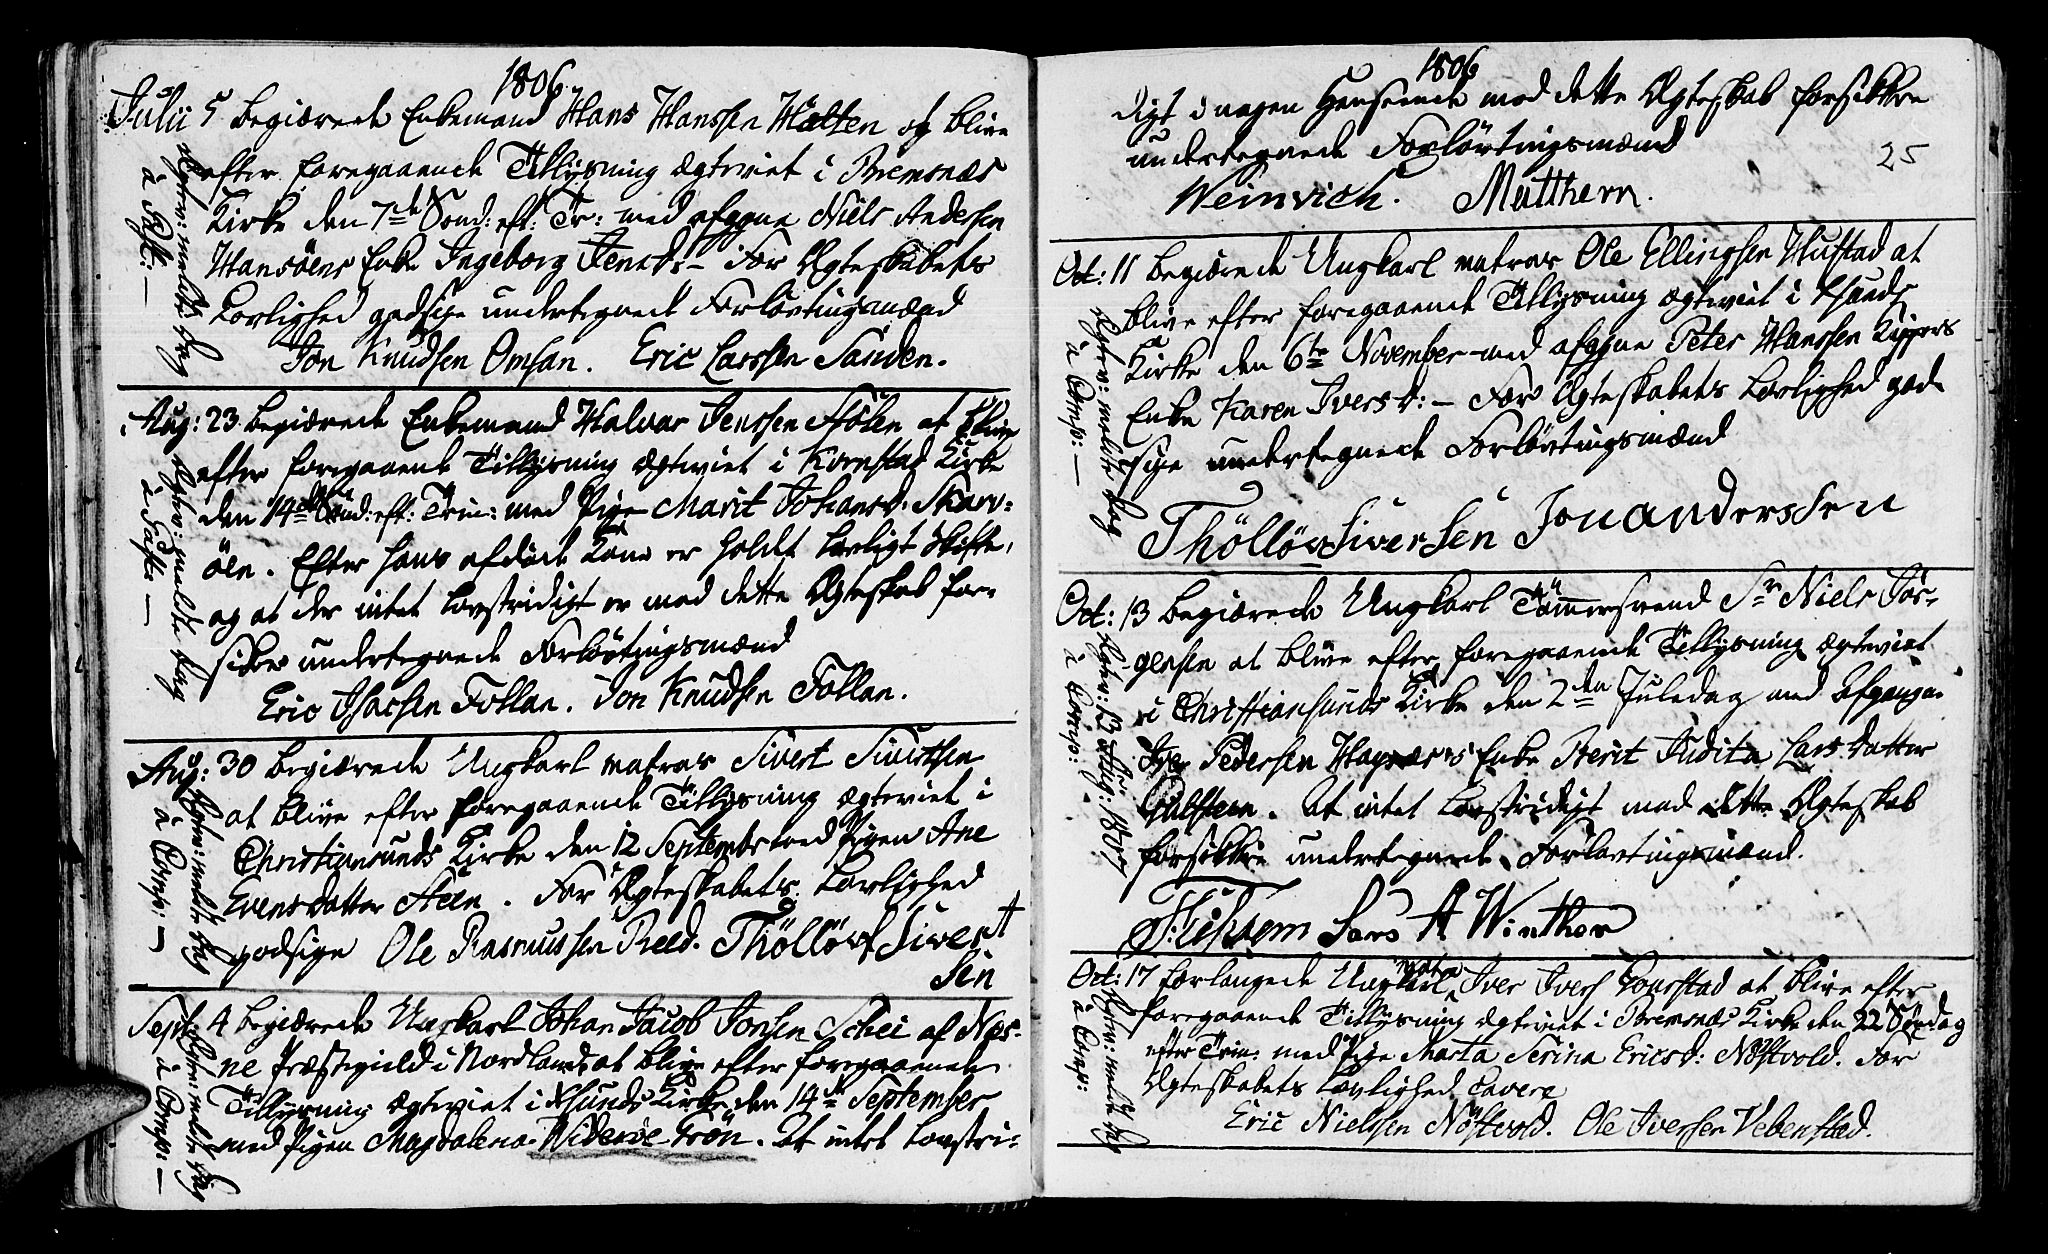 1806
Julii 5 begiærede Enkemand Hans Hanssen Hatten og blive
efter foregaaende Tillysning Ægteviet i Bremsnæs
Kirke den 7de Sönd: eft: Tr: med afgagne Niels Andersen
Hansöens Enke Ingeborg Jensd: – For Ægteskabets
Lovlighed godsige undertegnede Forlovtingsmænd
Jon Knudsen Omsan. Eric Larssen Sanden.
Ægtev: meldte Dag
à
Aug: 23. begiærede Enkemand Halvar Jenssen Stölen at blive
efter foregaaende Tillysning Ægteviet i Kornstad Kirke
den 14de Sönd: eft: Trin: med Pige Marit Johansd: Skarv-
öen. Efter hans afdöde Kone er holdt lovligt Skifte,
og at der intet lovstridigt er med dette Ægteskab for-
sikre undertegnede Forlovtingsmænd
Eric Isacsen Follan. Jon Knudsen Follan.
Ægtev: meldte Dag
à
Aug: 30 begiærede Ungkarl matros Sivert Sivertsen
at blive efter foregaaende Tillysning Ægteviet i
Christiansunds Kirke den 12 Septembr med Pigen Ane
Evensdatter Steen. For Ægteskabets Lovlighed
godsige Ole Rasmussen Reed. Thöllöv Sivert
Sen
Ægtev: meldte Dag
à Comp: –
Sept. 4 begiærede Ungkarl Johan Jacob Jonsen Schei af Næs-
ne Præstegield i Nordland at blive efter foregaaende
Tillysning Ægteviet i Xsunds Kirke den 14de September
med Pigen Magdalena Wideröe Grön. At intet Lovstri-
Ægtev: meldte Dag
à Comp: –
1806
digt i nogen Henseende mod dette Ægteskab forsikkre
undertegnede Forlövtingsmænd
25
Weinvich. Mutthern.
Oct: 11 begiærede Ungkarl matros Ole Ellingsen Hustad at
blive efter foregaaende Tillysning Ægteviet i Xsunds
Kirke den 6te November med afgagne Peter Hanssen Kippers
Enke Karen Iversd: – For Ægteskabets Lovlighed god-
sige undertegnede Forlövtingsmænd
Thöllöv Siversen Jon Anderssen
Ægtev: meldte Dag
à Comp: –
Oct: 13 begiærede Ungkarl Tömmersvend Sr Niels Jör-
gensen at blive efter foregaaende Tillysning Ægteviet
i Christiansunds Kirke den 2den Juledag med Afgangne
Iver Pedersen Hagnæs's Enke Berit Judita Larsdatter
Gulsteen. At intet Lovstridigt mod dette Ægteskab
forsikkre undertegnede Forlovtingsmænd.
Lars A Winther
Oct: 17 forlangede Ungkarl matr Iver Ivers at blive efter
foregaaende Tillysning Ægteviet i Bremsnæs Kirke den 22 Söndag
efter Trin: med Pige Marta Serina Ericsd: Nöstvold. For
Ægteskabets Lovlighed cavere
Eric Nielssen Nöstvold. Ole Iversen Vebenstad.
Ægtev: meldte Dag
à Comp: